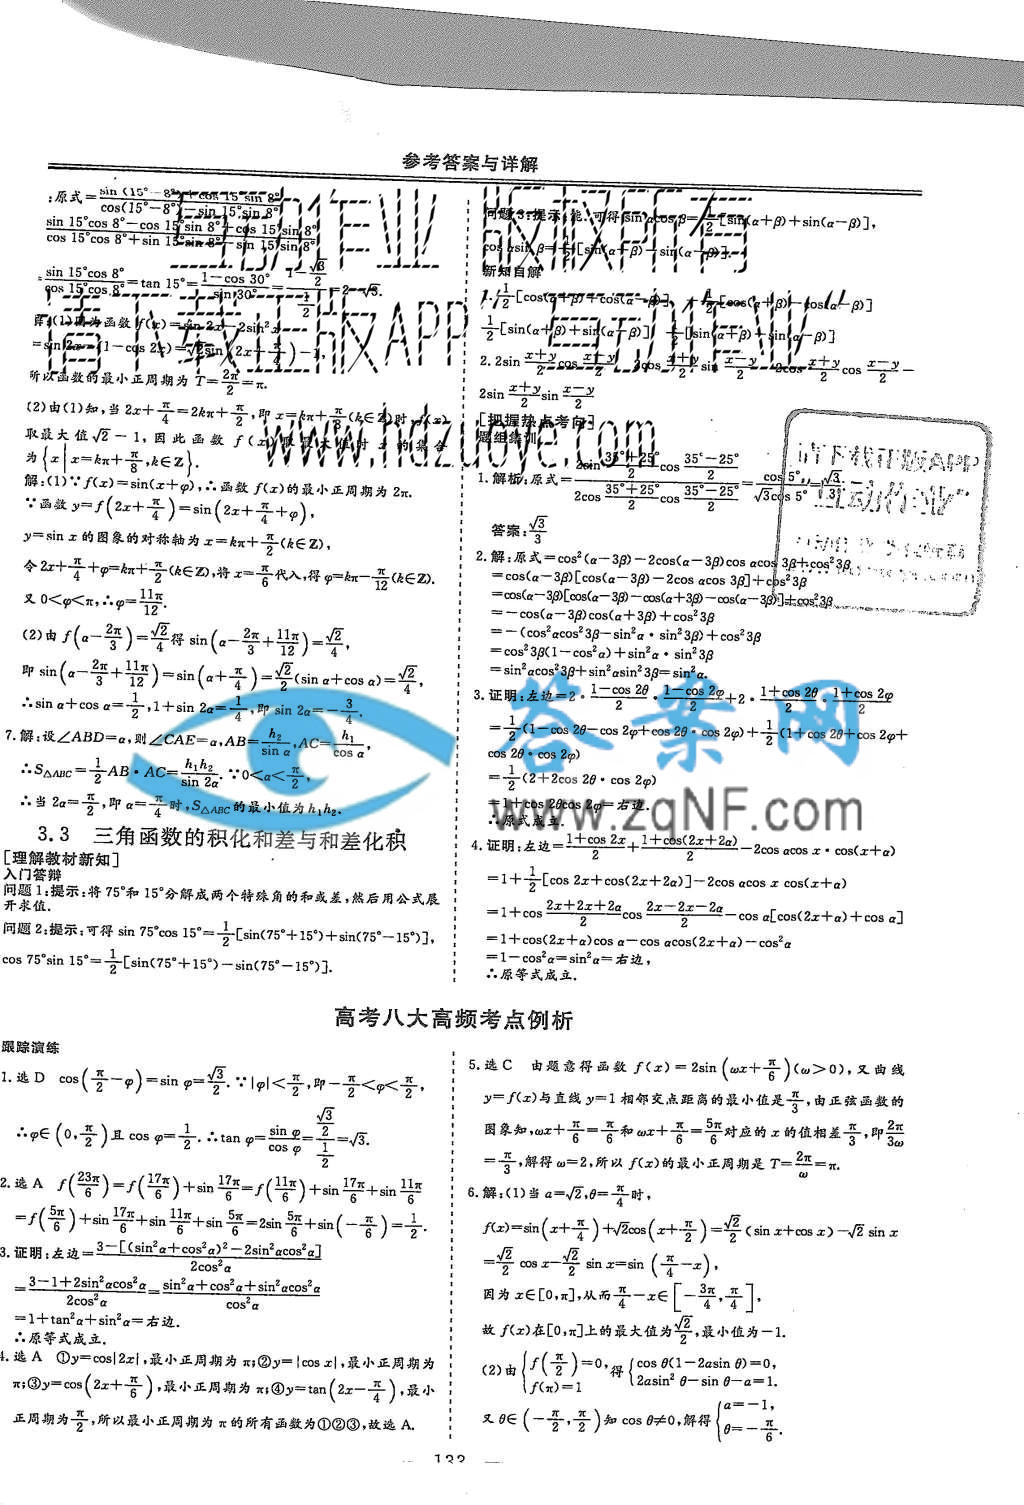 参考答案与详解
:原式=
cos(15°-8°)-sin 15°sin 8°
sin 15°cos 8°-cos 15°sin 8°+cos 15°sin 8°
cos 15°cos 8°+sin 15°sin 8°-sin 15°sin 8°
=sin 15°cos 8°/cos 15°cos 8°=tan 15°=(1-cos 30°)/sin 30°=(1-√3/2)/(1/2)=2-√3.
所以函数的最小正周期为 T=2π/2=π.
(2)由(1)知,当 2x+π/4=2kπ+π/2,即 x=kπ+π/8(k∈Z)时,f(x)
取最大值√2-1,因此函数 f(x)取最大值时 x 的集合
为{x|x=kπ+π/8,k∈Z}.
解:(1)∵f(x)=sin(x+φ),∴函数 f(x)的最小正周期为 2π.
∵函数 y=f(2x+π/4)=sin(2x+π/4+φ),
y=sin x 的图象的对称轴为 x=kπ+π/2(k∈Z),
令 2x+π/4+φ=kπ+π/2(k∈Z),将 x=π/6代入,得 φ=kπ-π/12(k∈Z).
又 0<φ<π,∴φ=11π/12.
(2)由 f(α-2π/3)=√2/4得 sin(α-2π/3+11π/12)=√2/4,
即 sin(α-2π/3+11π/12)=sin(α+π/4)=√2/2(sin α+cos α)=√2/4,
∴sin α+cos α=1/2,1+sin 2α=1/4,即 sin 2α=-3/4.
7.解:设∠ABD=α,则∠CAE=α,AB=h₂/sin α,AC=h₁/cos α,
∴S△ABC=1/2AB·AC=h₁h₂/sin 2α.∵0<α<π/2,
∴当 2α=π/2,即 α=π/4时,S△ABC的最小值为 h₁h₂.
3.3 三角函数的积化和差与和差化积
[理解教材新知]
入门答辩
问题 1:提示:将 75°和 15°分解成两个特殊角的和或差,然后用公式展
开求值.
问题 2:提示:可得 sin 75°cos 15°=1/2[sin(75°+15°)+sin(75°-15°)],
cos 75°sin 15°=1/2[sin(75°+15°)-sin(75°-15°)].
问题 3:提示:能.可得 sin αcos β=1/2[sin(α+β)+sin(α-β)],
cos αsin β=1/2[sin(α+β)-sin(α-β)].
新知自解
1.1/2[cos(α+β)+cos(α-β)] -1/2[cos(α+β)-cos(α-β)]
1/2[sin(α+β)+sin(α-β)] 1/2[sin(α+β)-sin(α-β)]
2.2sin (x+y)/2 cos (x-y)/2 2cos (x+y)/2 sin (x-y)/2 2cos (x+y)/2 cos (x-y)/2 -
2sin (x+y)/2 sin (x-y)/2
[把握热点考向]
题组集训
1.解析:原式=(2sin (35°+25°)/2 cos (35°-25°)/2)/(2cos (35°+25°)/2 cos (35°-25°)/2)=cos 5°/(√3cos 5°)=√3/3.
答案:√3/3
2.解:原式=cos²(α-3β)-2cos(α-3β)cos αcos 3β+cos²3β
=cos(α-3β)[cos(α-3β)-2cos αcos 3β]+cos²3β
=cos(α-3β)[cos(α-3β)-cos(α+3β)-cos(α-3β)]+cos²3β
=-cos(α-3β)cos(α+3β)+cos²3β
=-(cos²αcos²3β-sin²α·sin²3β)+cos²3β
=cos²3β(1-cos²α)+sin²α·sin²3β
=sin²αcos²3β+sin²αsin²3β=sin²α.
3.证明:左边=2·(1-cos 2θ)/2·(1-cos 2φ)/2+2·(1+cos 2θ)/2·(1+cos 2φ)/2
=1/2(1-cos 2θ-cos 2φ+cos 2θ·cos 2φ)+1/2(1+cos 2θ+cos 2φ+
cos 2θ·cos 2φ)
=1/2(2+2cos 2θ·cos 2φ)
=1+cos 2θcos 2φ=右边.
∴原式成立.
4.证明:左边=(1+cos 2x)/2+(1+cos(2x+2α))/2-2cos αcos x·cos(x+α)
=1+1/2[cos 2x+cos(2x+2α)]-2cos αcos x cos(x+α)
=1+cos (2x+2x+2α)/2 cos (2x-2x-2α)/2-cos α[cos(2x+α)+cos α]
=1+cos(2x+α)cos α-cos αcos(2x+α)-cos²α
=1-cos²α=sin²α=右边,
∴原等式成立.
高考八大高频考点例析
跟踪演练
1.选 D cos(π/2-φ)=sin φ=√3/2.∵|φ|<π/2,即-π/2<φ<π/2,
∴φ∈(0,π/2)且 cos φ=1/2.∴tan φ=sin φ/cos φ=(√3/2)/(1/2)=√3.
2.选 A f(23π/6)=f(17π/6)+sin 17π/6=f(11π/6)+sin 17π/6+sin 11π/6
=f(5π/6)+sin 17π/6+sin 11π/6+sin 5π/6=2sin 5π/6+sin(-π/6)=1/2.
3.证明:左边=(3-[(sin²α+cos²α)²-2sin²αcos²α])/2cos²α
=(3-1+2sin²αcos²α)/2cos²α=(sin²α+cos²α+sin²αcos²α)/cos²α
=1+tan²α+sin²α=右边.
∴原等式成立.
4.选 A ①y=cos|2x|,最小正周期为 π;②y=|cos x|,最小正周期为
π;③y=cos(2x+π/6),最小正周期为 π;④y=tan(2x-π/4),最小
正周期为π/2,所以最小正周期为 π 的所有函数为①②③,故选 A.
5.选 C 由题意得函数 f(x)=2sin(ωx+π/6)(ω>0),又曲线
y=f(x)与直线 y=1 相邻交点距离的最小值是π/3,由正弦函数的
图象知,ωx+π/6=π/6和 ωx+π/6=5π/6对应的 x 的值相差π/3,即2π/3ω
=π/3,解得 ω=2,所以 f(x)的最小正周期是 T=2π/ω=π.
6.解:(1)当 a=√2,θ=π/4时,
f(x)=sin(x+π/4)+√2cos(x+π/2)=√2/2(sin x+cos x)-√2 sin x
=√2/2 cos x-√2/2 sin x=sin(π/4-x),
因为 x∈[0,π],从而π/4-x∈[-3π/4,π/4],
故 f(x)在[0,π]上的最大值为√2/2,最小值为-1.
(2)由{f(π/2)=0, f(π)=1 得{cos θ(1-2asin θ)=0, 2asin² θ-sin θ-a=1.
又 θ∈(-π/2,π/2)知 cos θ≠0,解得{a=-1, θ=-π/6.
答案网
www.zqNF.com